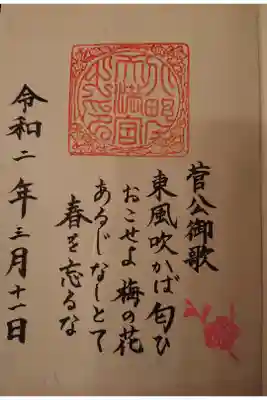 菅公御歌
東風吹かば匂ひ
おこせよ梅の花
あるじなしとて
春を忘るな
令和二年三月十一日